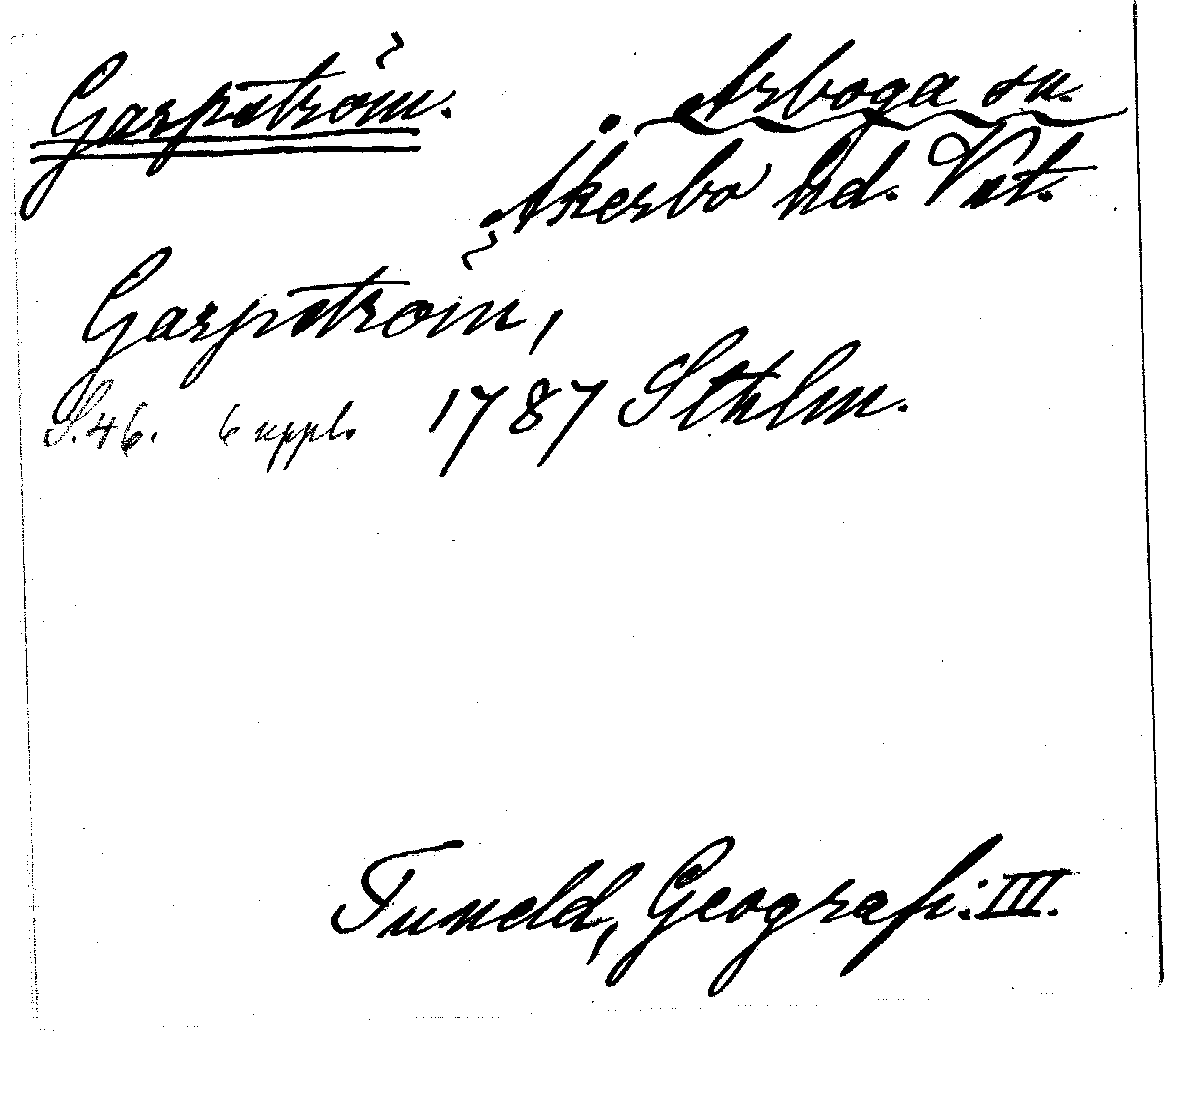 Garpström. Arboga sn.
Åkerbo hd. Vst.
Garpström,
S. 46. 6 uppl. 1787 Sthlm.
Tuneld, Geografi. III.